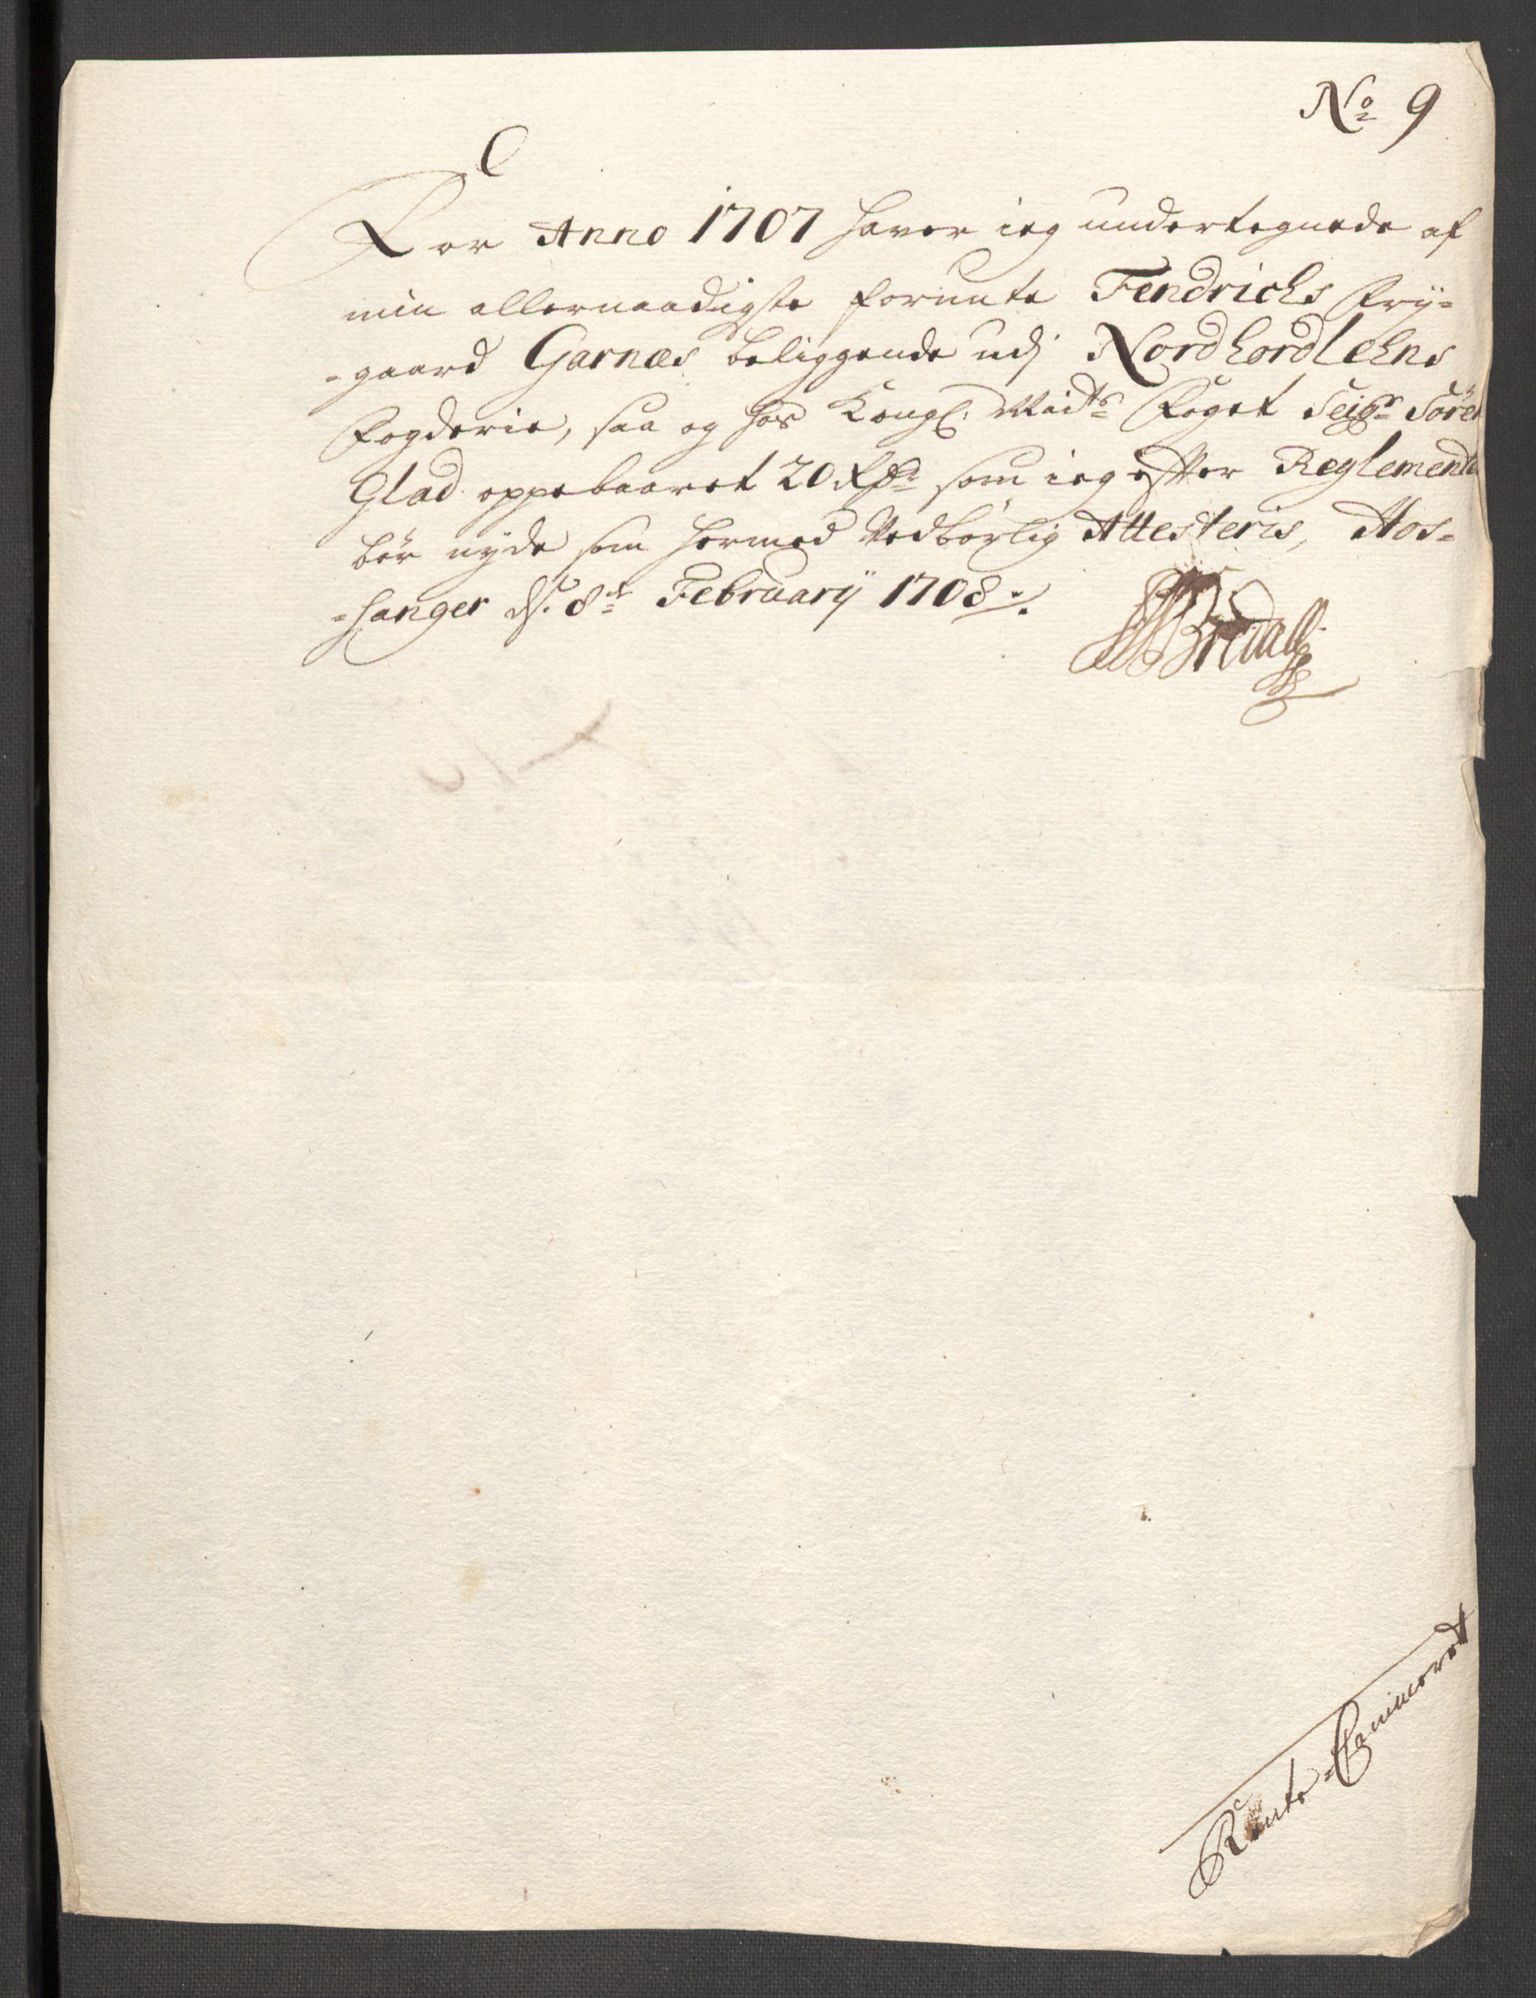 No 9
For Anno 1707 haver ieg undertegnede af
min allernaadigste forunte Fendrichs Frÿ=
=gaard Garnæs beliggende udj Nordhordlehns
Fogderie, saa og hos Kongl: Maÿts Foget Seigr Sören
Glad oppebaaret 20 Rdr som ieg efter Reglemente
bör nyde som hermed Vedbörlig Attesteris, Hos=
=hanger ds. 8de Februarÿ 1708
Bredall
Rente-Cammeret